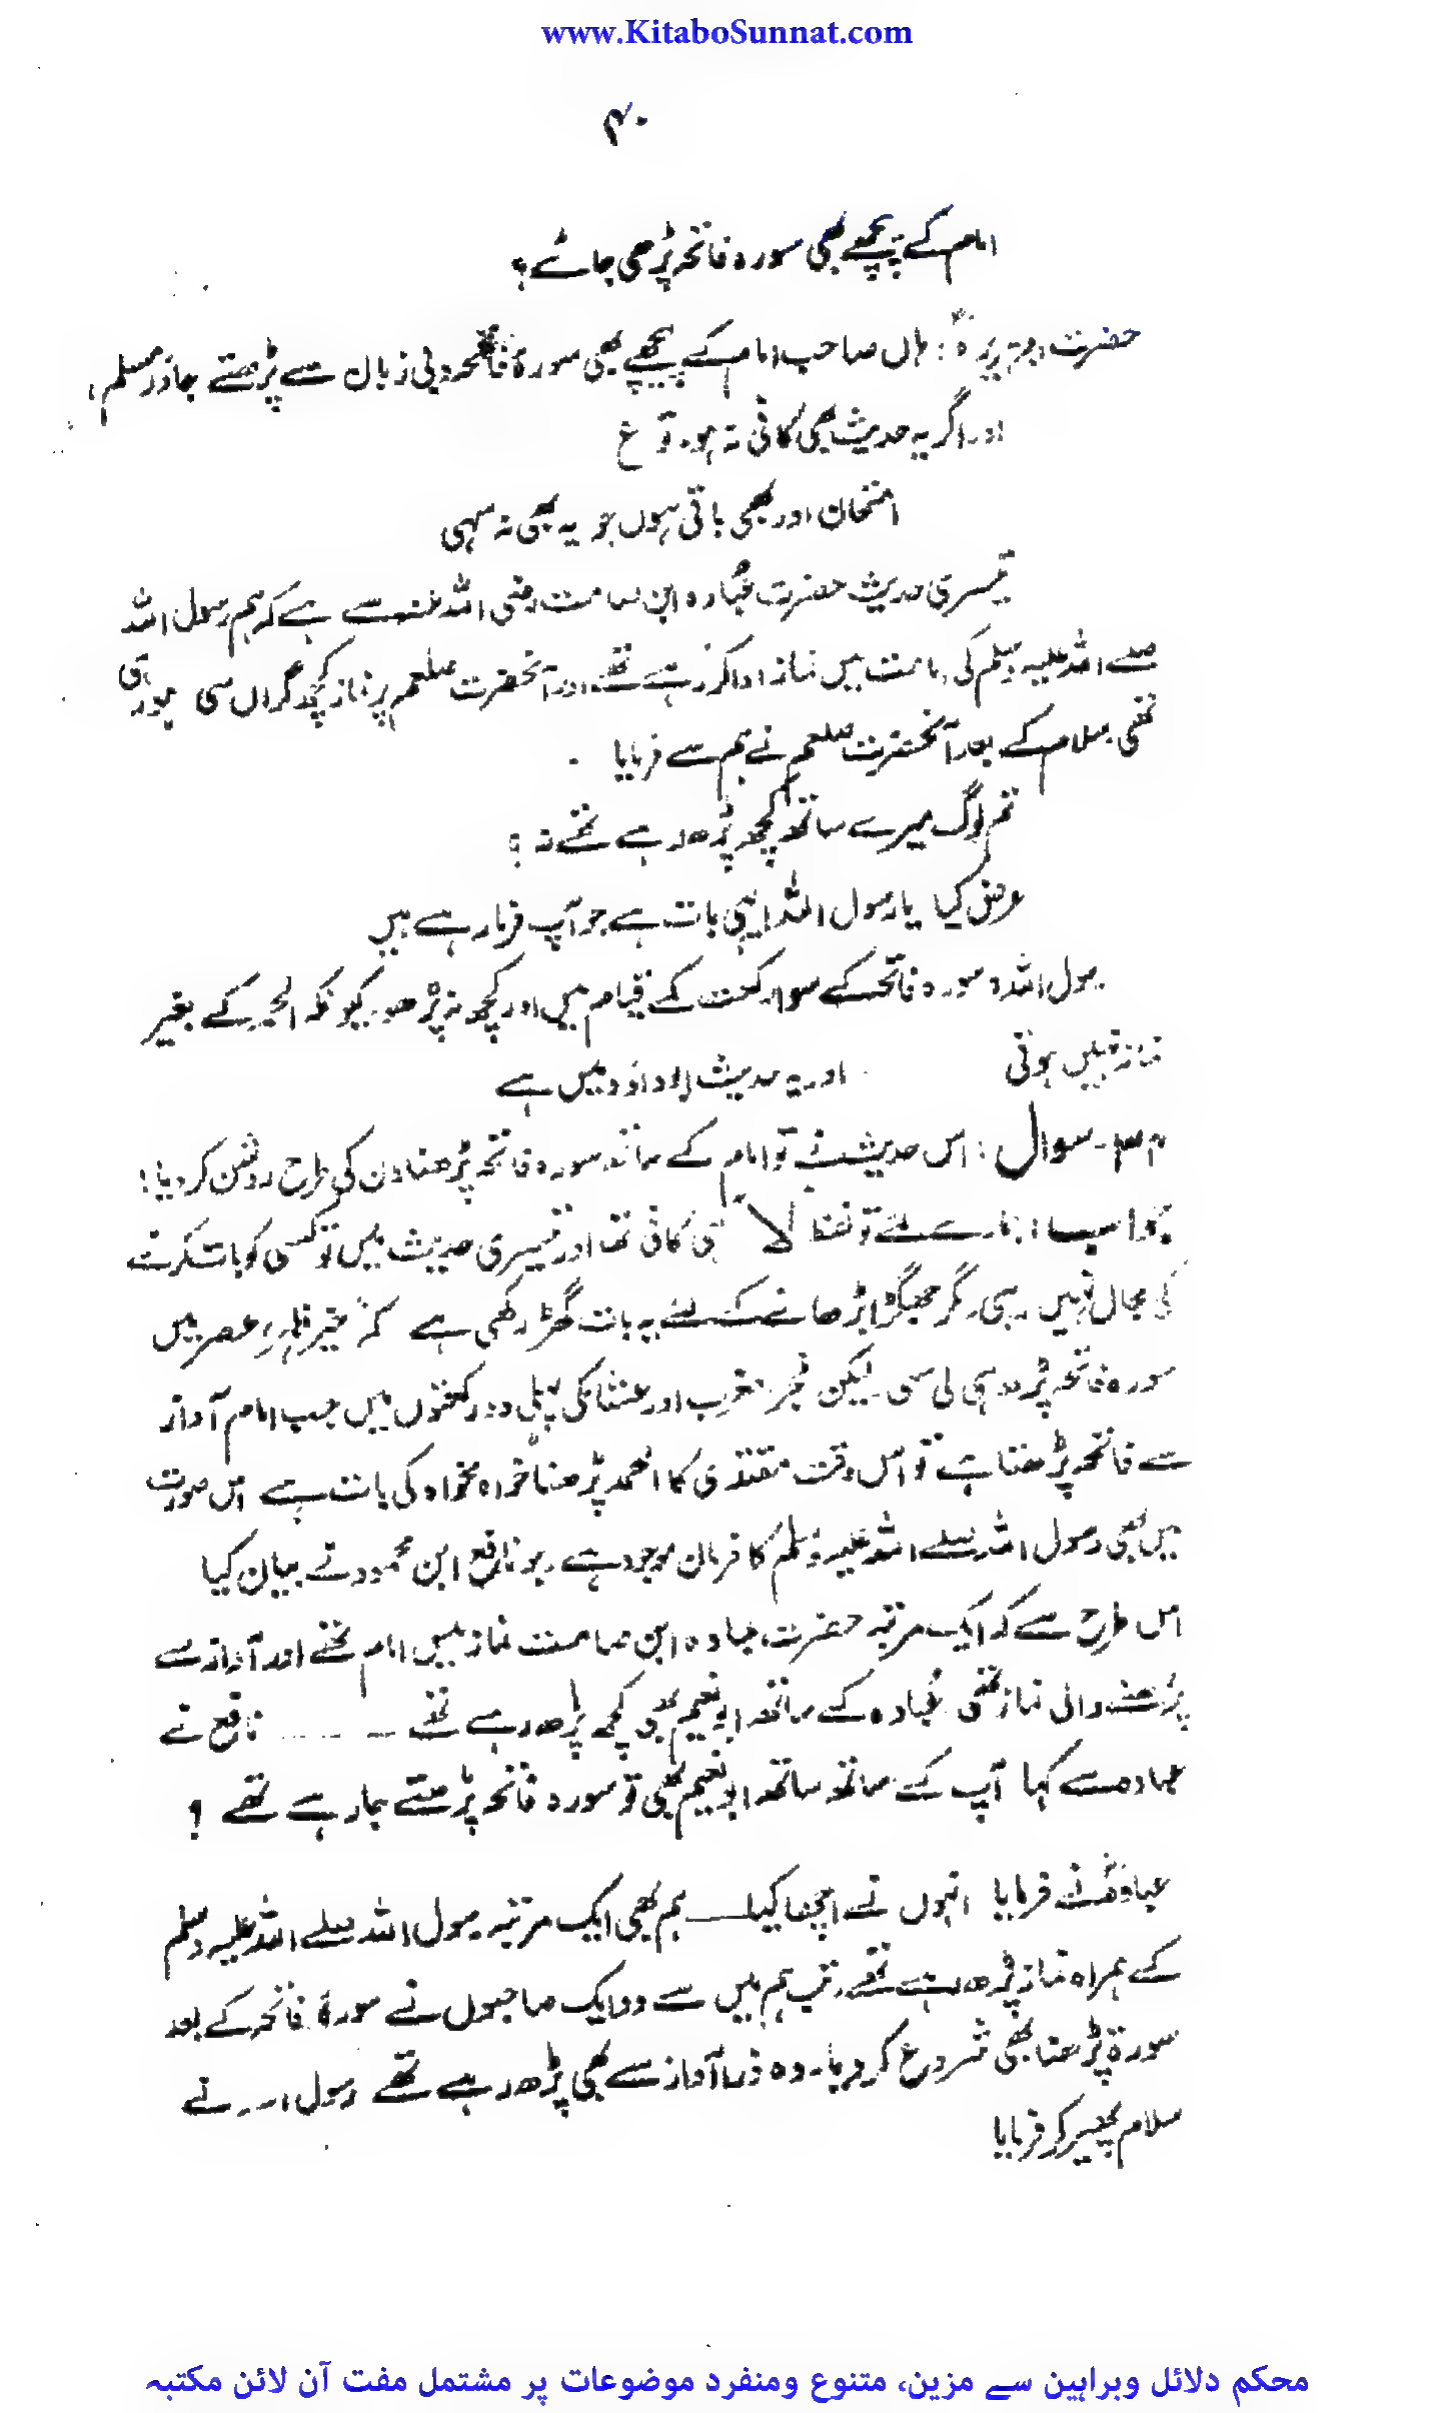 www.KitaboSunnat.com
۴۰
امام کے پیچھے بھی سورہ فاتحہ پڑھی جائے؟
حضرت ابو ہریرہؓ: ہاں صاحب امام کے پیچھے بھی سورۃ فاتحہ دبی زبان سے پڑھتے جاؤ (مسلم)
اور اگر یہ حدیث بھی کافی نہ ہو۔ تو ع
امتحان اور بھی باقی ہوں جو یہ بھی نہ سہی
تیسری حدیث حضرت عُبادہ ابن صامت رضی اللہ عنہ سے ہے کہ ہم رسول اللہ
صلے اللہ علیہ وسلم کی امامت میں نماز ادا کر رہے تھے۔ اور آنحضرت صلعم پر نماز کچھ گراں سی ہو رہی
تھی سلام کے بعد آنحضرت صلعم نے ہم سے فرمایا
تم لوگ میرے ساتھ کچھ پڑھ رہے تھے نہ؟
عرض کیا یا رسول اللہ! یہی بات ہے جو آپ فرما رہے ہیں
رسول اللہ: سورہ فاتحہ کے سوا رکعت کے قیام میں اور کچھ نہ پڑھو۔ کیونکہ الحمد کے بغیر
نماز نہیں ہوتی اور یہ حدیث ابو داؤد میں ہے
۳۴۔ سوال: اس حدیث نے تو امام کے ساتھ سورہ فاتحہ پڑھنا دن کی طرح روشن کر دیا!
جواب: ہمارے لئے تو فقط لا ہی کافی تھا اور تیسری حدیث میں تو کسی کو بات کرنے
کی مجال نہیں رہی۔ مگر جھگڑا بڑھانے کے لئے یہ بات گھڑ رکھی ہے کہ خیر ظہر و عصر میں
سورہ فاتحہ پڑھ ہی لی سہی لیکن فجر مغرب اور عشاء کی پہلی دو رکعتوں میں جب امام آواز
سے فاتحہ پڑھتا ہے تو اس وقت مقتدی کا الحمد پڑھنا خواہ مخواہ کی بات ہے اس صورت
میں بھی رسول اللہ صلے اللہ علیہ وسلم کا فرمان موجود ہے۔ جو نافع ابن محمود نے بیان کیا
اس طرح سے کہ ایک مرتبہ حضرت عبادہ ابن صامت نماز میں امام تھے اور آواز سے
پڑھنے والی نماز تھی عُبادہ کے ساتھ ابو نعیم بھی کچھ پڑھ رہے تھے ـــ ...... نافع نے
عبادہ سے کہا آپ کے ساتھ ساتھ ابو نعیم بھی تو سورہ فاتحہ پڑھتے جا رہے تھے ؟
عبادہؓ نے فرمایا انہوں نے اچھا کیا ـــ ہم بھی ایک مرتبہ رسول اللہ صلے اللہ علیہ وسلم
کے ہمراہ نماز پڑھ رہے تھے۔ تب ہم میں سے دو ایک صاحبوں نے سورۃ فاتحہ کے بعد
سورۃ پڑھنا بھی شروع کر دیا۔ وہ ذرا آواز سے بھی پڑھ رہے تھے رسول اللہ نے
سلام پھیر کر فرمایا
محکم دلائل وبراہین سے مزین، متنوع ومنفرد موضوعات پر مشتمل مفت آن لائن مکتبہ